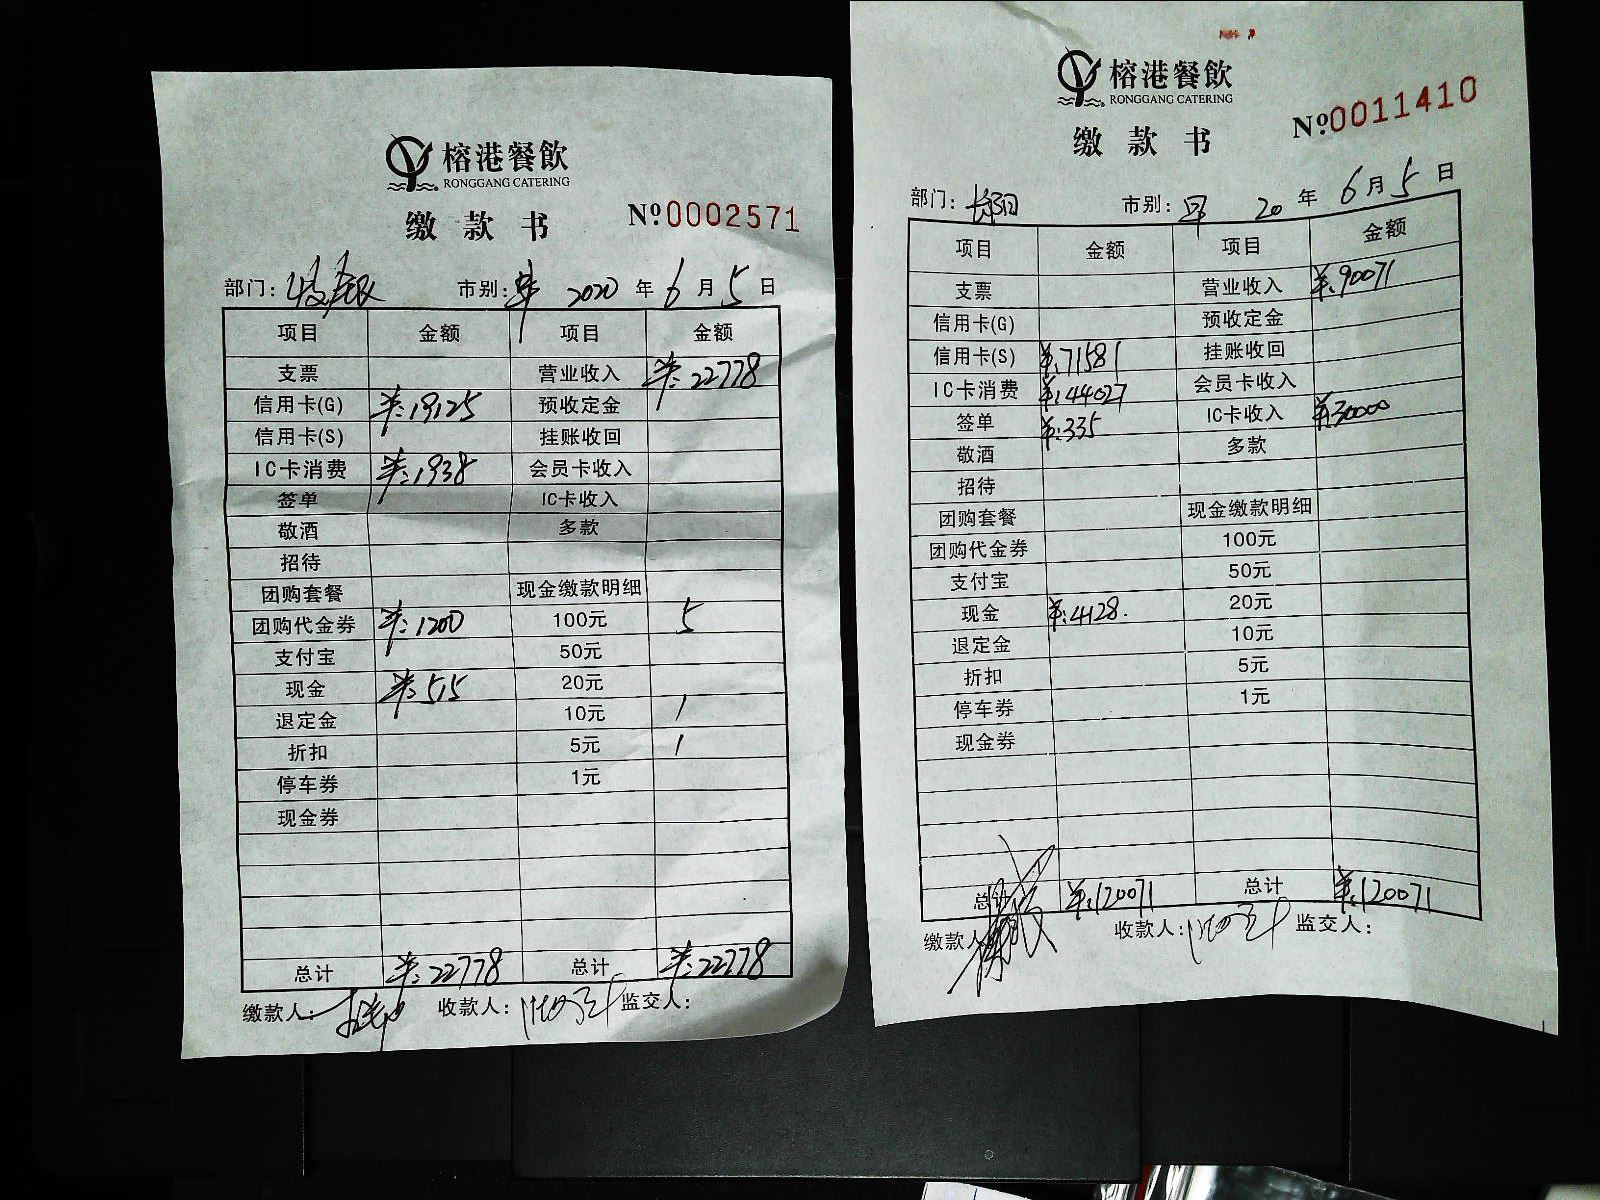 榕港餐飲
RONGGANG CATERING
缴款书
Nº0002571
部门: 市别: 2020 年 6 月 5 日
项目 金额 项目 金额
支票 营业收入 ¥:22778
信用卡(G) ¥:19125 预收定金
信用卡(S) 挂账收回
IC卡消费 ¥:1938 会员卡收入
签单 IC卡收入
敬酒 多款
招待
团购套餐 现金缴款明细
团购代金券 ¥:1200 100元 5
支付宝 50元
现金 ¥:515 20元
退定金 10元 1
折扣 5元 1
停车券 1元
现金券
总计 ¥:22778 总计 ¥:22778
缴款人: 收款人: 监交人:
榕港餐飲
RONGGANG CATERING
缴款书
Nº0011410
部门: 市别: 早 20 年 6 月 5 日
项目 金额 项目 金额
支票 营业收入 ¥:90071
信用卡(G) 预收定金
信用卡(S) ¥:71581 挂账收回
IC卡消费 ¥:44027 会员卡收入
签单 ¥:335 IC卡收入 ¥:30000
敬酒 多款
招待
团购套餐 现金缴款明细
团购代金券 100元
支付宝 50元
现金 ¥:4128. 20元
退定金 10元
折扣 5元
停车券 1元
现金券
总计 ¥:120071 总计 ¥:120071
缴款人 收款人: 监交人: